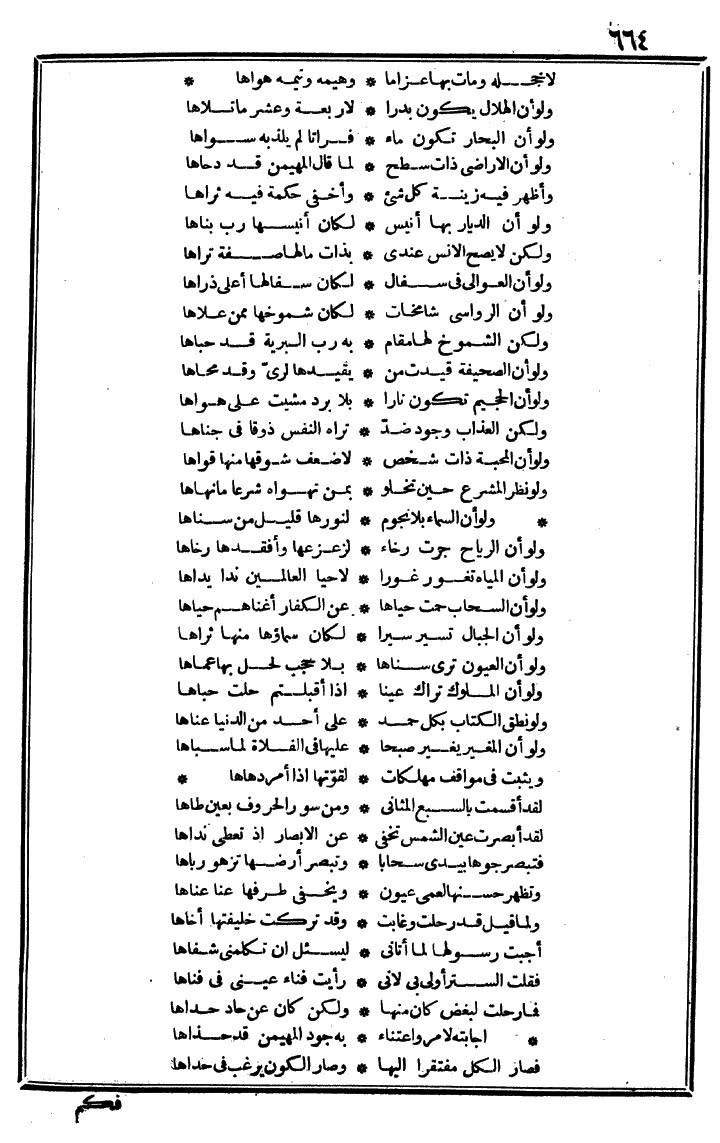 ٦٦٤
لاخجـــله ومات بها غراما * وهيمه وتيمه هواها *
ولو أن الهلال يكون بدرا * لاربعة وعشر ما تلاها
ولو أن البحار تكون ماء * فراتا لم يلذ به سواها
ولو أن الاراضى ذات سطح * لما قال المهيمن قد دحاها
وأظهر فيه زينة كل شئ * وأخفى حكمة فيه ثراها
ولو أن الديار بها أنيس * لكان أنيسها رب بناها
ولكن لا يصح الانس عندى * بذات مالها صفة تراها
ولو أن العوالى فى سفال * لكان سفالها أعلى ذراها
ولو أن الرواسى شامخات * لكان شموخها ممن علاها
ولكن الشموخ لها مقام * به رب البرية قد حباها
ولو أن الصحيفة قيدت من * يقيدها لرىّ وقد محاها
ولو أن الجحيم تكون نارا * بلا برد مشيت على هواها
ولكن العذاب وجود ضدّ * تراه النفس ذوقا فى جناها
ولو أن المحبة ذات شخص * لاضعف شوقها منها قواها
ولو نظر المشرع حين تخلو * بمن تهواه شرعا ما نهاها
* ولو أن السماء بلا نجوم * لنورها قليل من سناها
ولو أن الرياح جرت رخاء * لزعزعها وأفقدها رخاها
ولو أن المياه تغور غورا * لاحيا العالمين ندا يداها
ولو أن السحاب حمت حياها * عن الكفار أغناهم حياها
ولو أن الجبال تسير سيرا * لكان سماؤها منها ثراها
ولو أن العيون ترى سناها * بلا حجب لحل بها عماها
ولو أن الملوك تراك عينا * اذا أقبلتم حلت حباها
ولو نطق الكتاب بكل حمد * على أحد من الدنيا عناها
ولو أن المغير يغير صبحا * عليها فى الفلاة لما سباها
ويثبت فى مواقف مهلكات * لقوّتها اذا أمر دهاها *
لقد أقسمت بالسبع المثانى * ومن سور الحروف بعين طاها
لقد أبصرت عين الشمس تخفى * عن الابصار اذ تعطى نداها
فتبصر جوها يبدى سحابا * وتبصر أرضها تزهو رباها
وتظهر حسنها لعمى عيون * ويخفى طرفها عنا عناها
ولما قيل قد رحلت وغابت * وقد تركت خليفتها أخاها
أجبت رسولها لما أتانى * ليسئل ان تكلمنى شفاها
فقلت الستر أولى بى لانى * رأيت فناء عينى فى فناها
فما رحلت لبغض كان منها * ولكن كان عن حاد حداها
* اجابته لامر واعتناء * به جود المهيمن قد حذاها
فصار الكل مفتقرا اليها * وصار الكون يرغب فى حداها
فكم